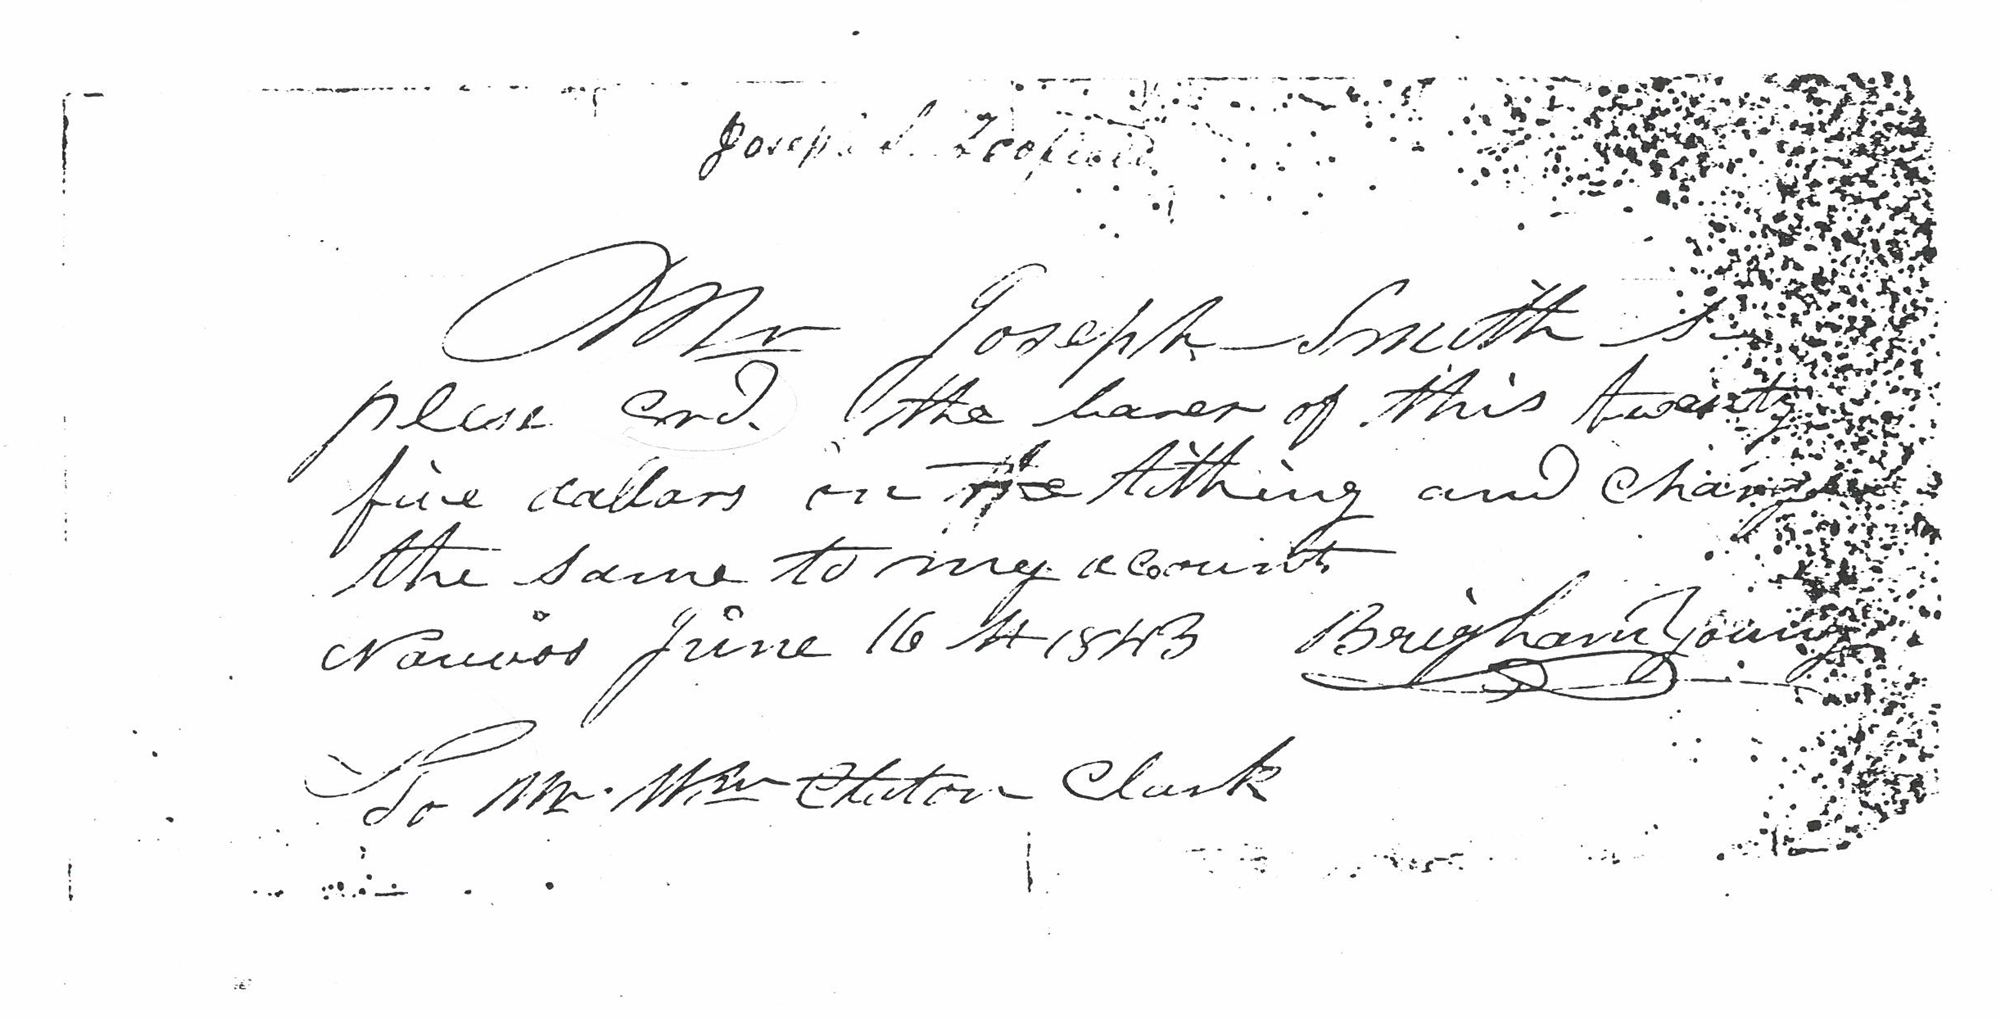 Joseph S. Scofield
Mr Joseph Smith s
pleas crd. the barer of this twenty
five dollars on the tithing and charge
the same to my acount
Nauvoo June 16 th 1843 Brigham Young
To Mr. Wm Claton Clark